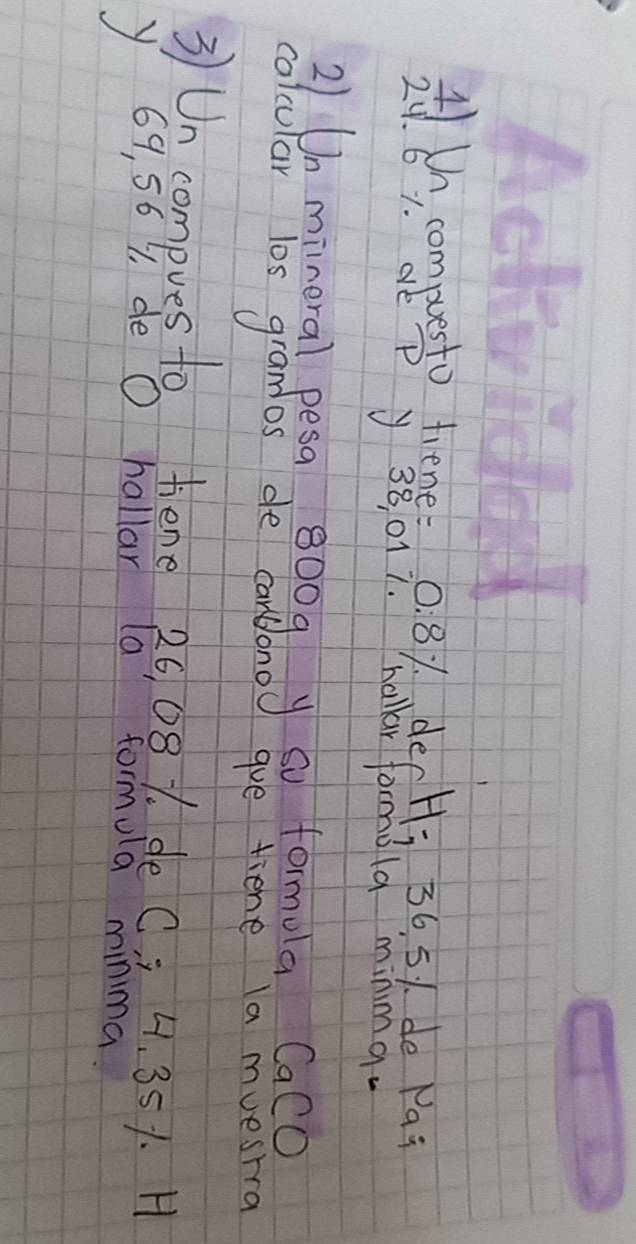 Actividad
1) Un compuesto tiene: 0.8% de H; 36,5% de Na;
24.6% de P y 38,01%. hallar formula minima.
2) Un miineral pesa 800g y su formula CaCO
calcular los gramos de carbono que tiene la muestra
3) Un compuesto tiene 26,08% de C; 4,35% H
y 69,56% de O hallar la formula minima.